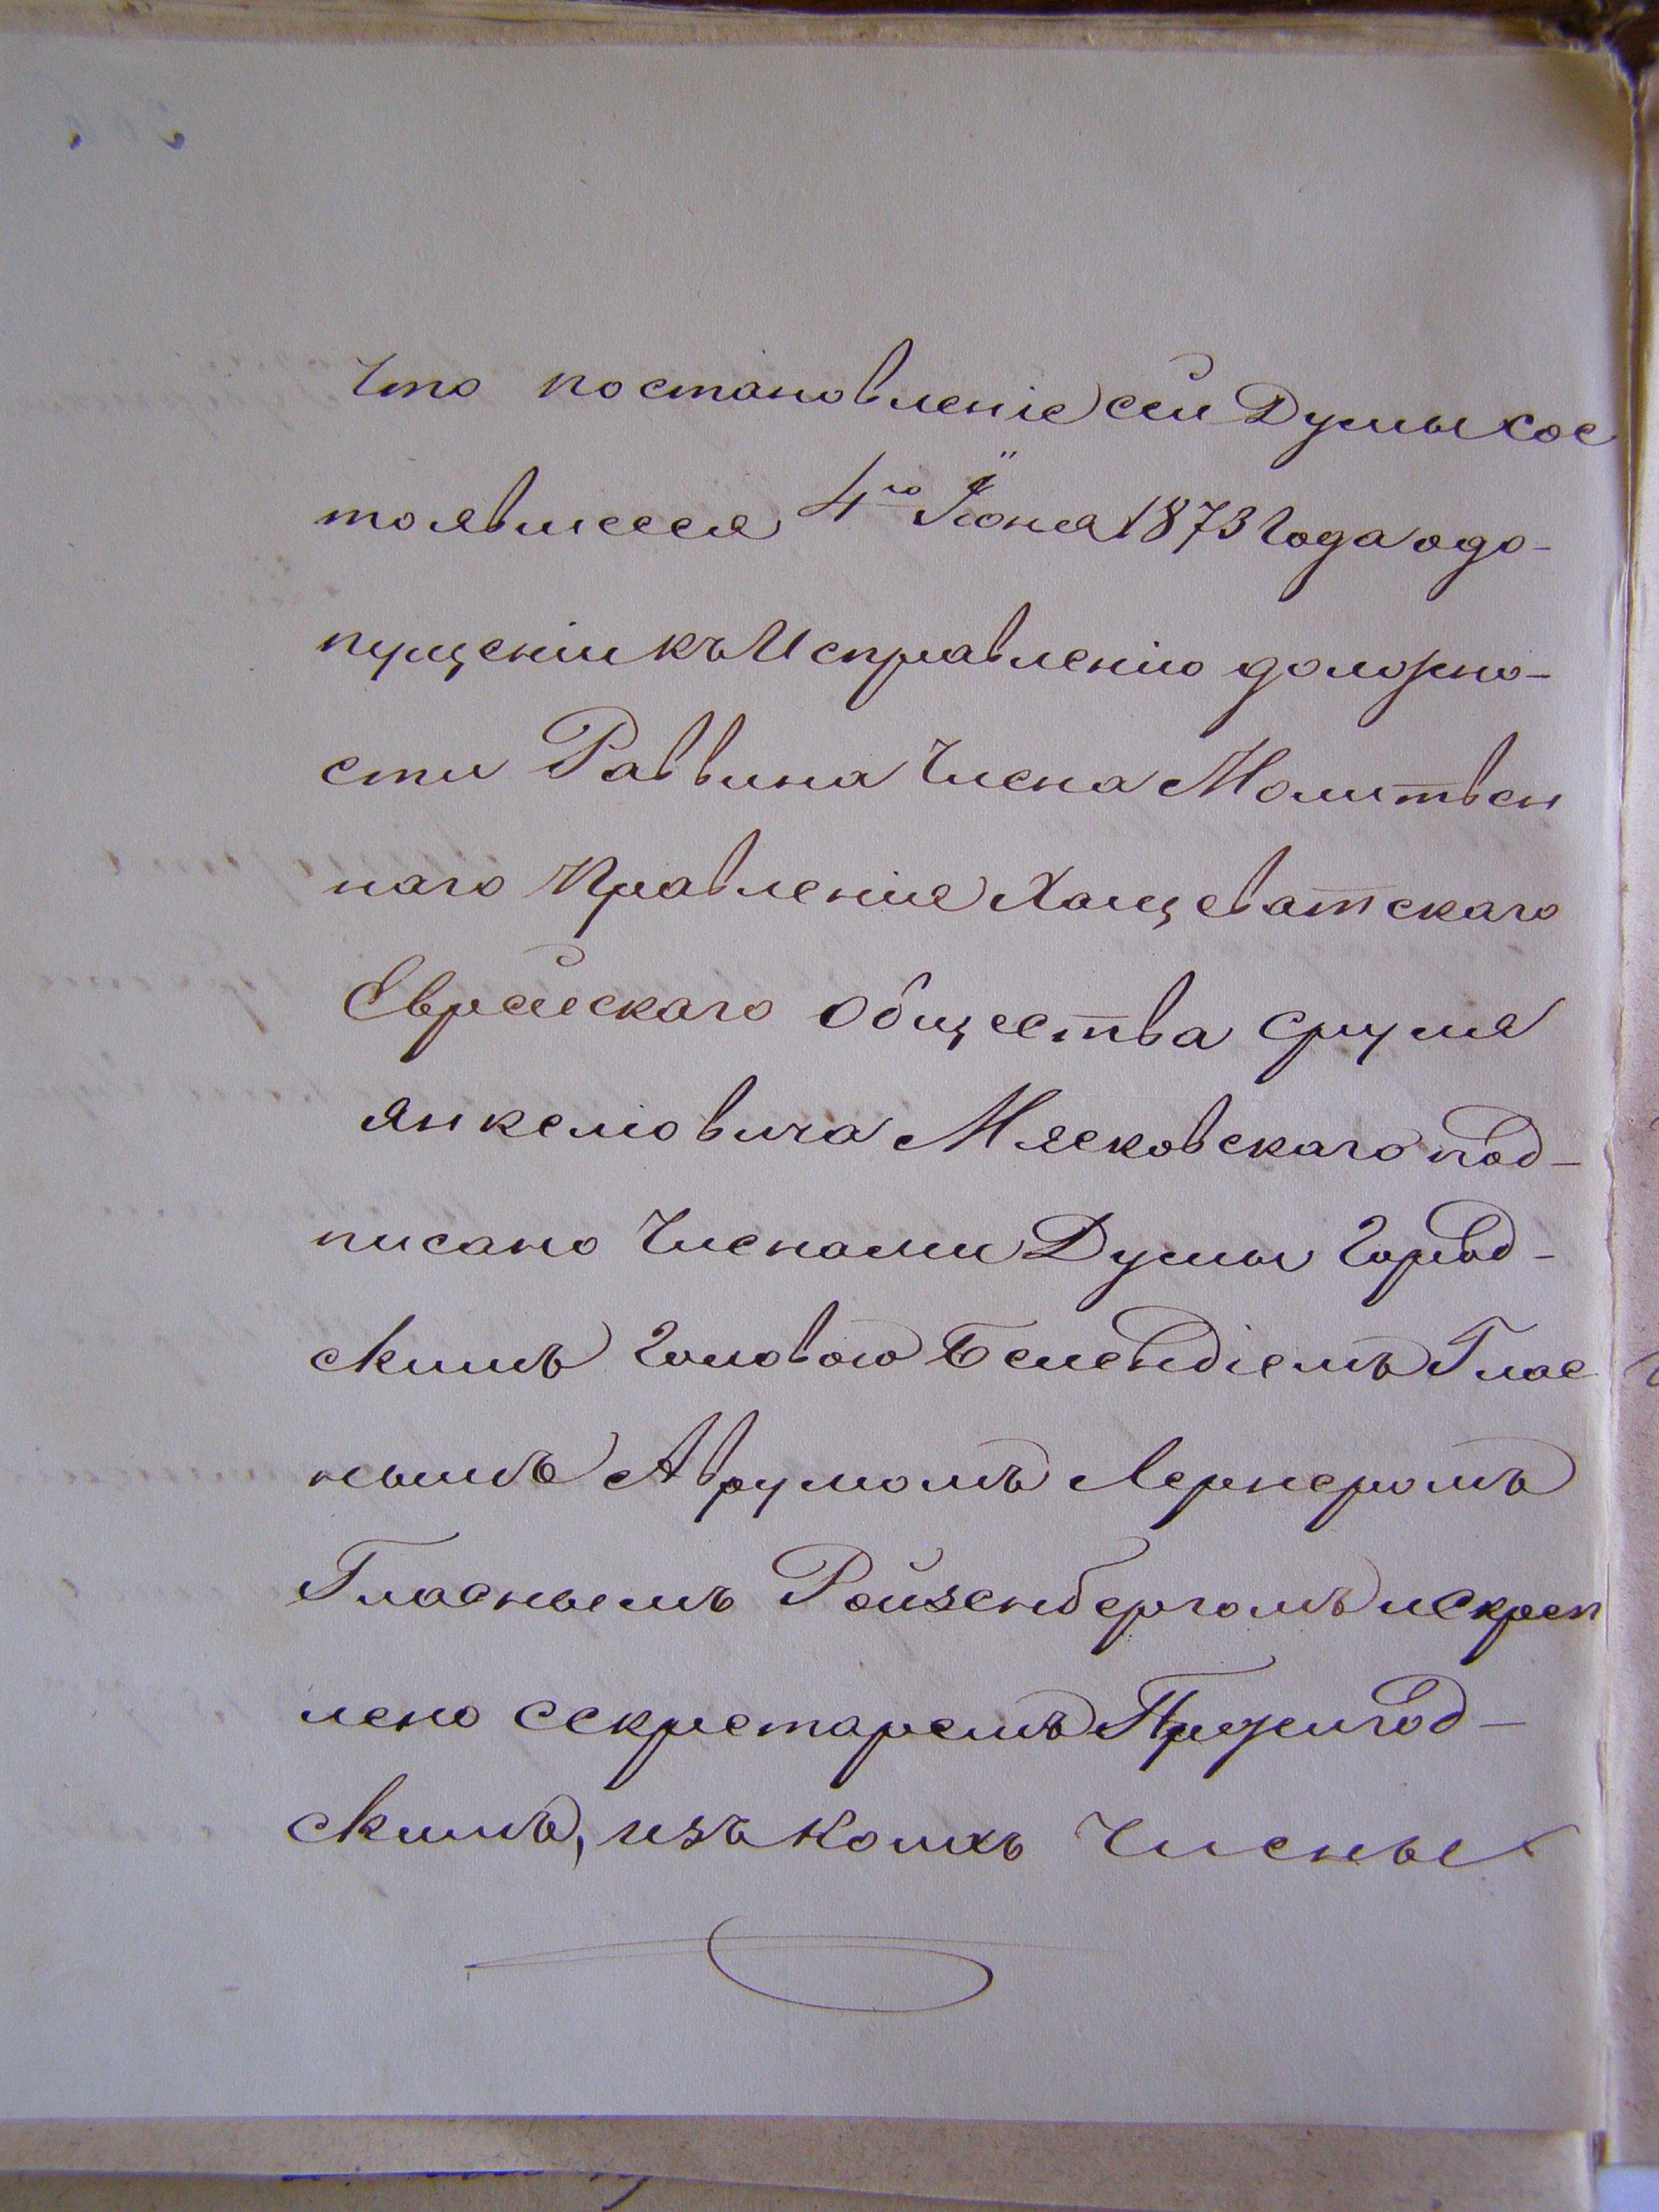 Что постановленіе сей Думы сос
тоявшееся 4го Іюня 1873 года о до-
пущеніи къ Исправленію должно-
сти Раввина Члена Молитвен
наго Правленія Хащеватскаго
Еврейскаго Общества Сруля
Янкелювича Мясковскаго под-
писано Членами Думы Город-
скимъ Головою ГГлас
нымъ Аврумомъ Лернеромъ
Гласнымъ Ройзенбергомъ и скреп
лено Секретаремъ
скимъ, изъ коихъ Члены